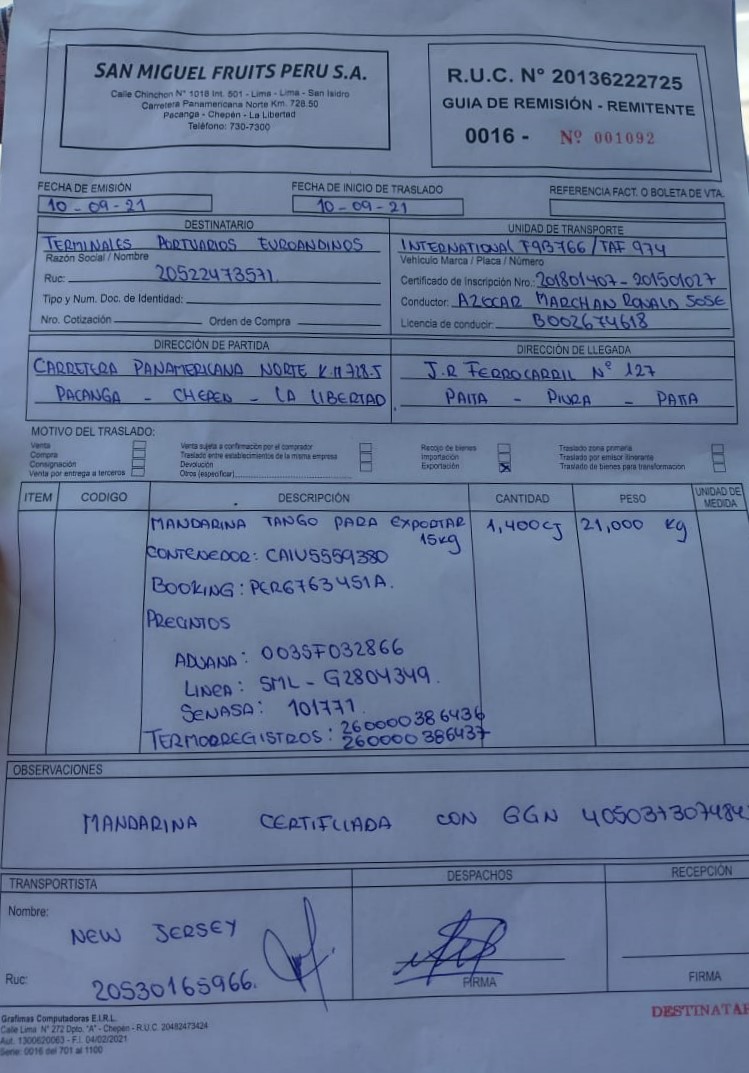 SAN MIGUEL FRUITS PERU S.A.
Calle Chinchon N° 1018 Int. 501 - Lima - Lima - San Isidro
Carretera Panamericana Norte Km. 728.50
Pacanga - Chepén - La Libertad
Teléfono: 730-7300
R.U.C. N° 20136222725
GUIA DE REMISIÓN - REMITENTE
0016 - Nº 001092
FECHA DE EMISIÓN
10-09-21
FECHA DE INICIO DE TRASLADO
10-09-21
REFERENCIA FACT. O BOLETA DE VTA.
DESTINATARIO
TERMINALES PORTUARIOS EUROANDINOS
Razón Social / Nombre
Ruc: 20522473571
Tipo y Num. Doc. de Identidad:
Nro. Cotización Orden de Compra
UNIDAD DE TRANSPORTE
INTERNATIONAL F9B766 / TAF 974
Vehículo Marca / Placa / Número
Certificado de Inscripción Nro.: 201801407 - 201501027
Conductor: AZOCAR MARCHAN RONALD JOSE
Licencia de conducir: B002674618
DIRECCIÓN DE PARTIDA
CARRETERA PANAMERICANA NORTE K.M 728.5
PACANGA - CHEPEN - LA LIBERTAD
DIRECCIÓN DE LLEGADA
J.R FERROCARRIL N° 127
PAITA - PIURA - PAITA
MOTIVO DEL TRASLADO:
Venta
Compra
Consignación
Venta por entrega a terceros
Venta sujeta a confirmación por el comprador
Traslado entre establecimientos de la misma empresa
Devolución
Otros (especificar)
Recojo de bienes
Importación
Exportación X
Traslado zona primaria
Traslado por emisor itinerante
Traslado de bienes para transformación
ITEM CODIGO DESCRIPCIÓN CANTIDAD PESO UNIDAD DE MEDIDA
MANDARINA TANGO PARA EXPORTAR 1,400CJ 21,000 kg
15kg
CONTENEDOR: CAIU5559380
BOOKING: PER6763451A.
PRECINTOS
ADUANA: 0035F032866
LINEA: SML - G2804349.
SENASA: 101771.
TERMORREGISTROS: 260000386436
260000386437
OBSERVACIONES
MANDARINA CERTIFICADA CON GGN
TRANSPORTISTA
Nombre: NEW JERSEY
Ruc: 20530165966.
DESPACHOS
FIRMA
RECEPCIÓN
FIRMA
Grafimas Computadoras E.I.R.L.
Calle Lima N° 272 Dpto. "A" - Chepén - R.U.C. 20482473424
Aut. 1300620063 - F.I. 04/02/2021
Serie: 0016 del 701 al 1100
DESTINATAR